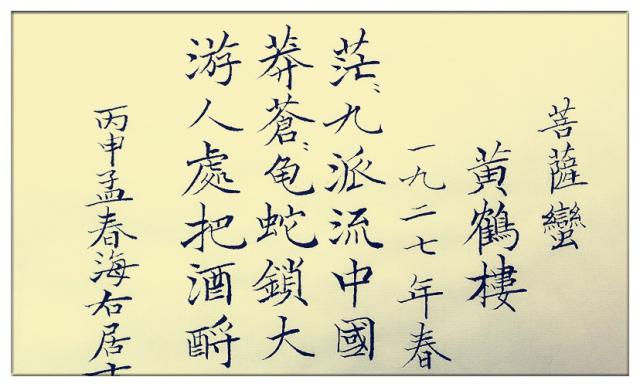 菩薩蠻
黃鶴樓
一九二七年春
茫〻九派流中國
莽蒼〻龟蛇鎖大
游人處把酒酹
丙申孟春海右居